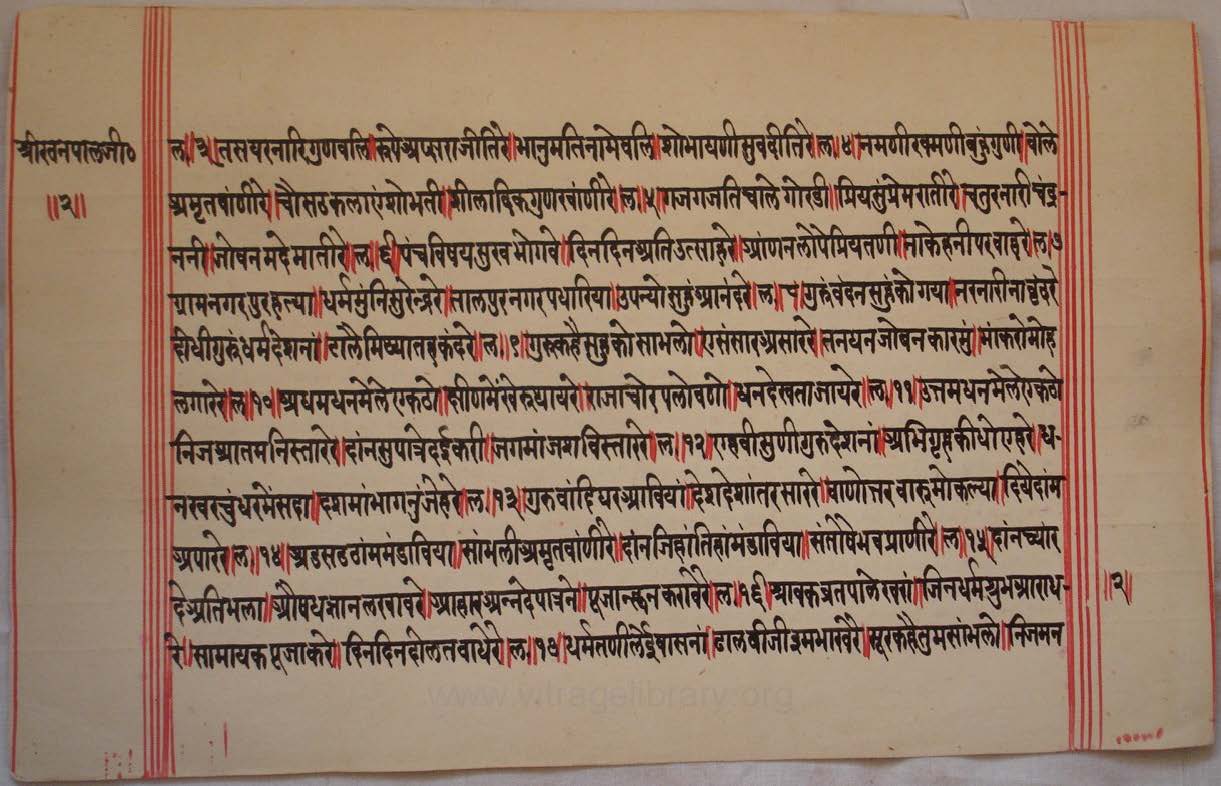 श्रीरतनपालजी०
॥२॥
ल.॥३॥तसघरनारिगुणवलि॥रूपेअपसराजीतिरे॥भानुमतिनामेवलि॥शोभाघणीसुवदीतिरे॥ल.॥४॥नमणीखमणीबहुंगुणी॥बोले
अमृतवांणीरे॥चौसठकलाएंशोभती॥शीलादिकगुणखांणीरे॥ल.॥५॥गजगजतिचाले गोरडी॥प्रियसुंप्रेमरातीरे॥चतुरनारीचंद्र-
ननी॥जोबनमदेमातीरे॥ल.॥६॥पंचविषयसुखभोगवे॥दिनदिनअतिउत्साहरे॥आंणनलोपेप्रियतणी॥नाकेहनीपरवाहरे॥ल.॥७
ग्रामनगरपुरहल्या॥धर्ममुंनिसुरेन्द्ररे॥तालपुरनगरपधारिया॥उपन्योसहुंआनंदरे॥ल.॥८॥गुरुंवंदनसहुंकोगया॥नरनारीनावृंदरे
दीधीगुरुंधर्मदेशनां॥टालैमिथ्यातवकंदरे॥ल.॥९॥गुरुकहैसहुकोसाभलो॥एसंसारअसाररे॥तनधनजोबनकारमुं॥मांकरोमोह
लगाररे॥ल.॥१०॥अथमधनमेलेएकठो॥क्षीणमेंखेरुथायरे॥राजाचोरपलोवणो॥धनदेखताजायरे॥ल.॥११॥उत्तमधनमेलेएकठो
निजआतमनिस्ताररे॥दांनसुपात्रेदईकरी॥जगमांजशविस्ताररे॥ल.॥१२॥एहवीसुणीगुरुदेशनां॥अभिगृहकीधोएहरे॥ध-
नखरचुंधरमेंसदा॥दशमांभागनुंजेहरे॥ल.॥१३॥गुरुवांदिघरआवियां॥देशदेशांतरसाररे॥वाणोत्तरवारुमोकल्या॥दियेदांम
अपाररे॥ल.॥१४॥अडसठठांममंडाविया॥सांभलीअमृतवांणीरे॥दांनजिहांतिहांमंडाविया॥संतोषेभवप्राणीरे॥ल.॥१५॥दांनच्यांर
देअतिभला॥औषधज्ञानलखावरे॥आहारअन्नदेपात्रने॥पूजान्हवनकरावेरे॥ल.॥१६॥श्रावकव्रतपालेखरां॥जिनधर्मशुभआराध-
रे॥सामायकपूजाकरे॥दिनदिनदोलतवाधेरे॥ल.॥१७॥धर्मतणीलेईवासनां॥ढालबीजीइमभाखेरे॥सूरकहैतुमसांभलो॥निजमन
॥२॥
www.vitragelibrary.org